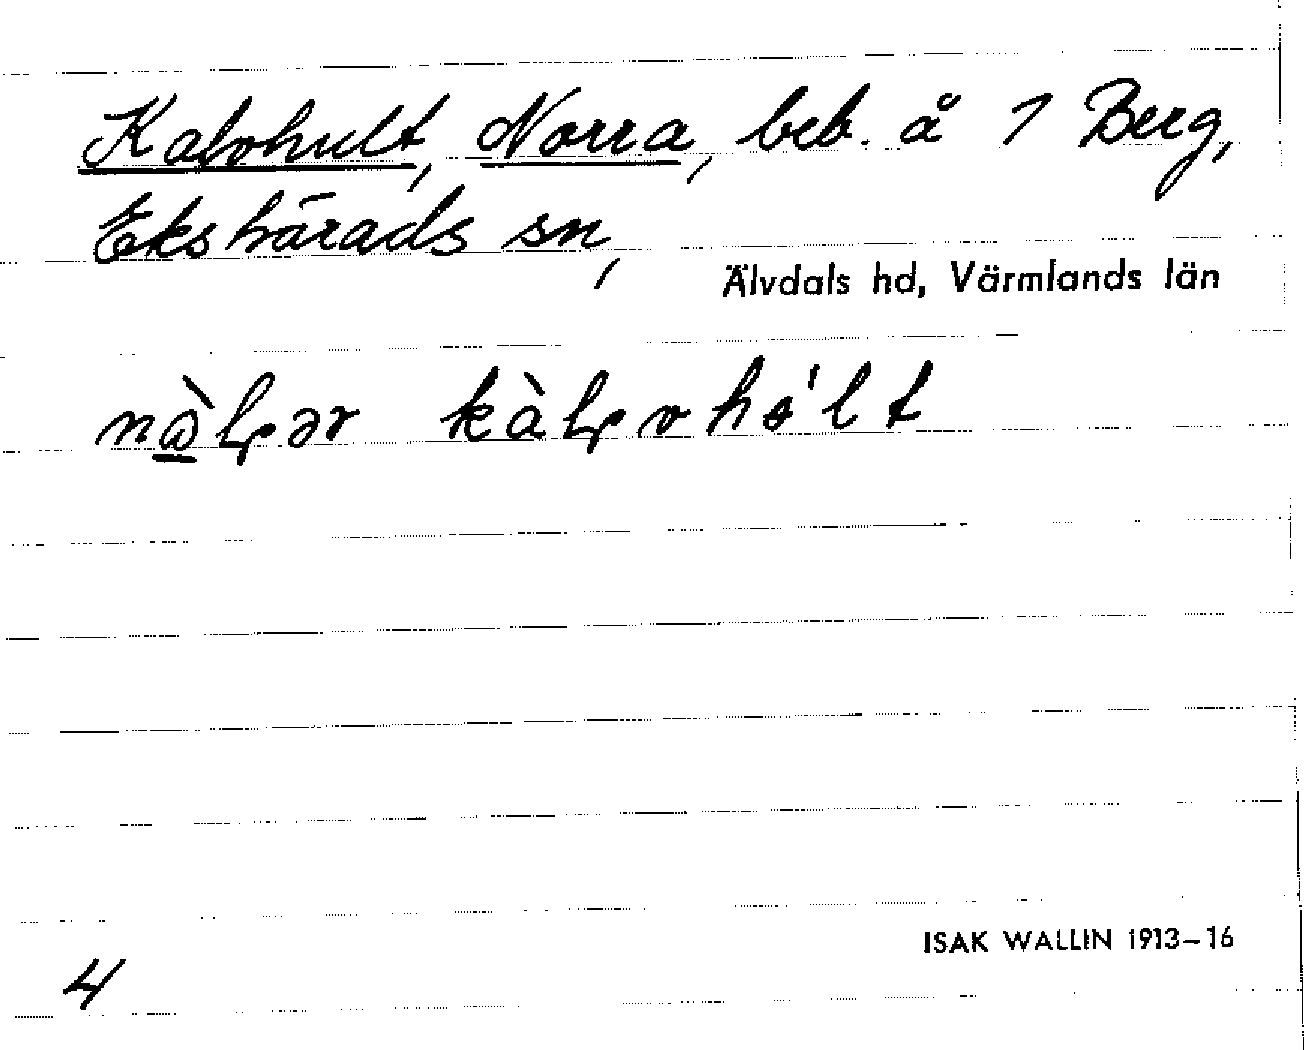 Kalvhult, Norra, beb. å 1 Berg,
Ekshärads sn,
Älvdals hd, Värmlands län
ISAK WALLIN 1913–16
4